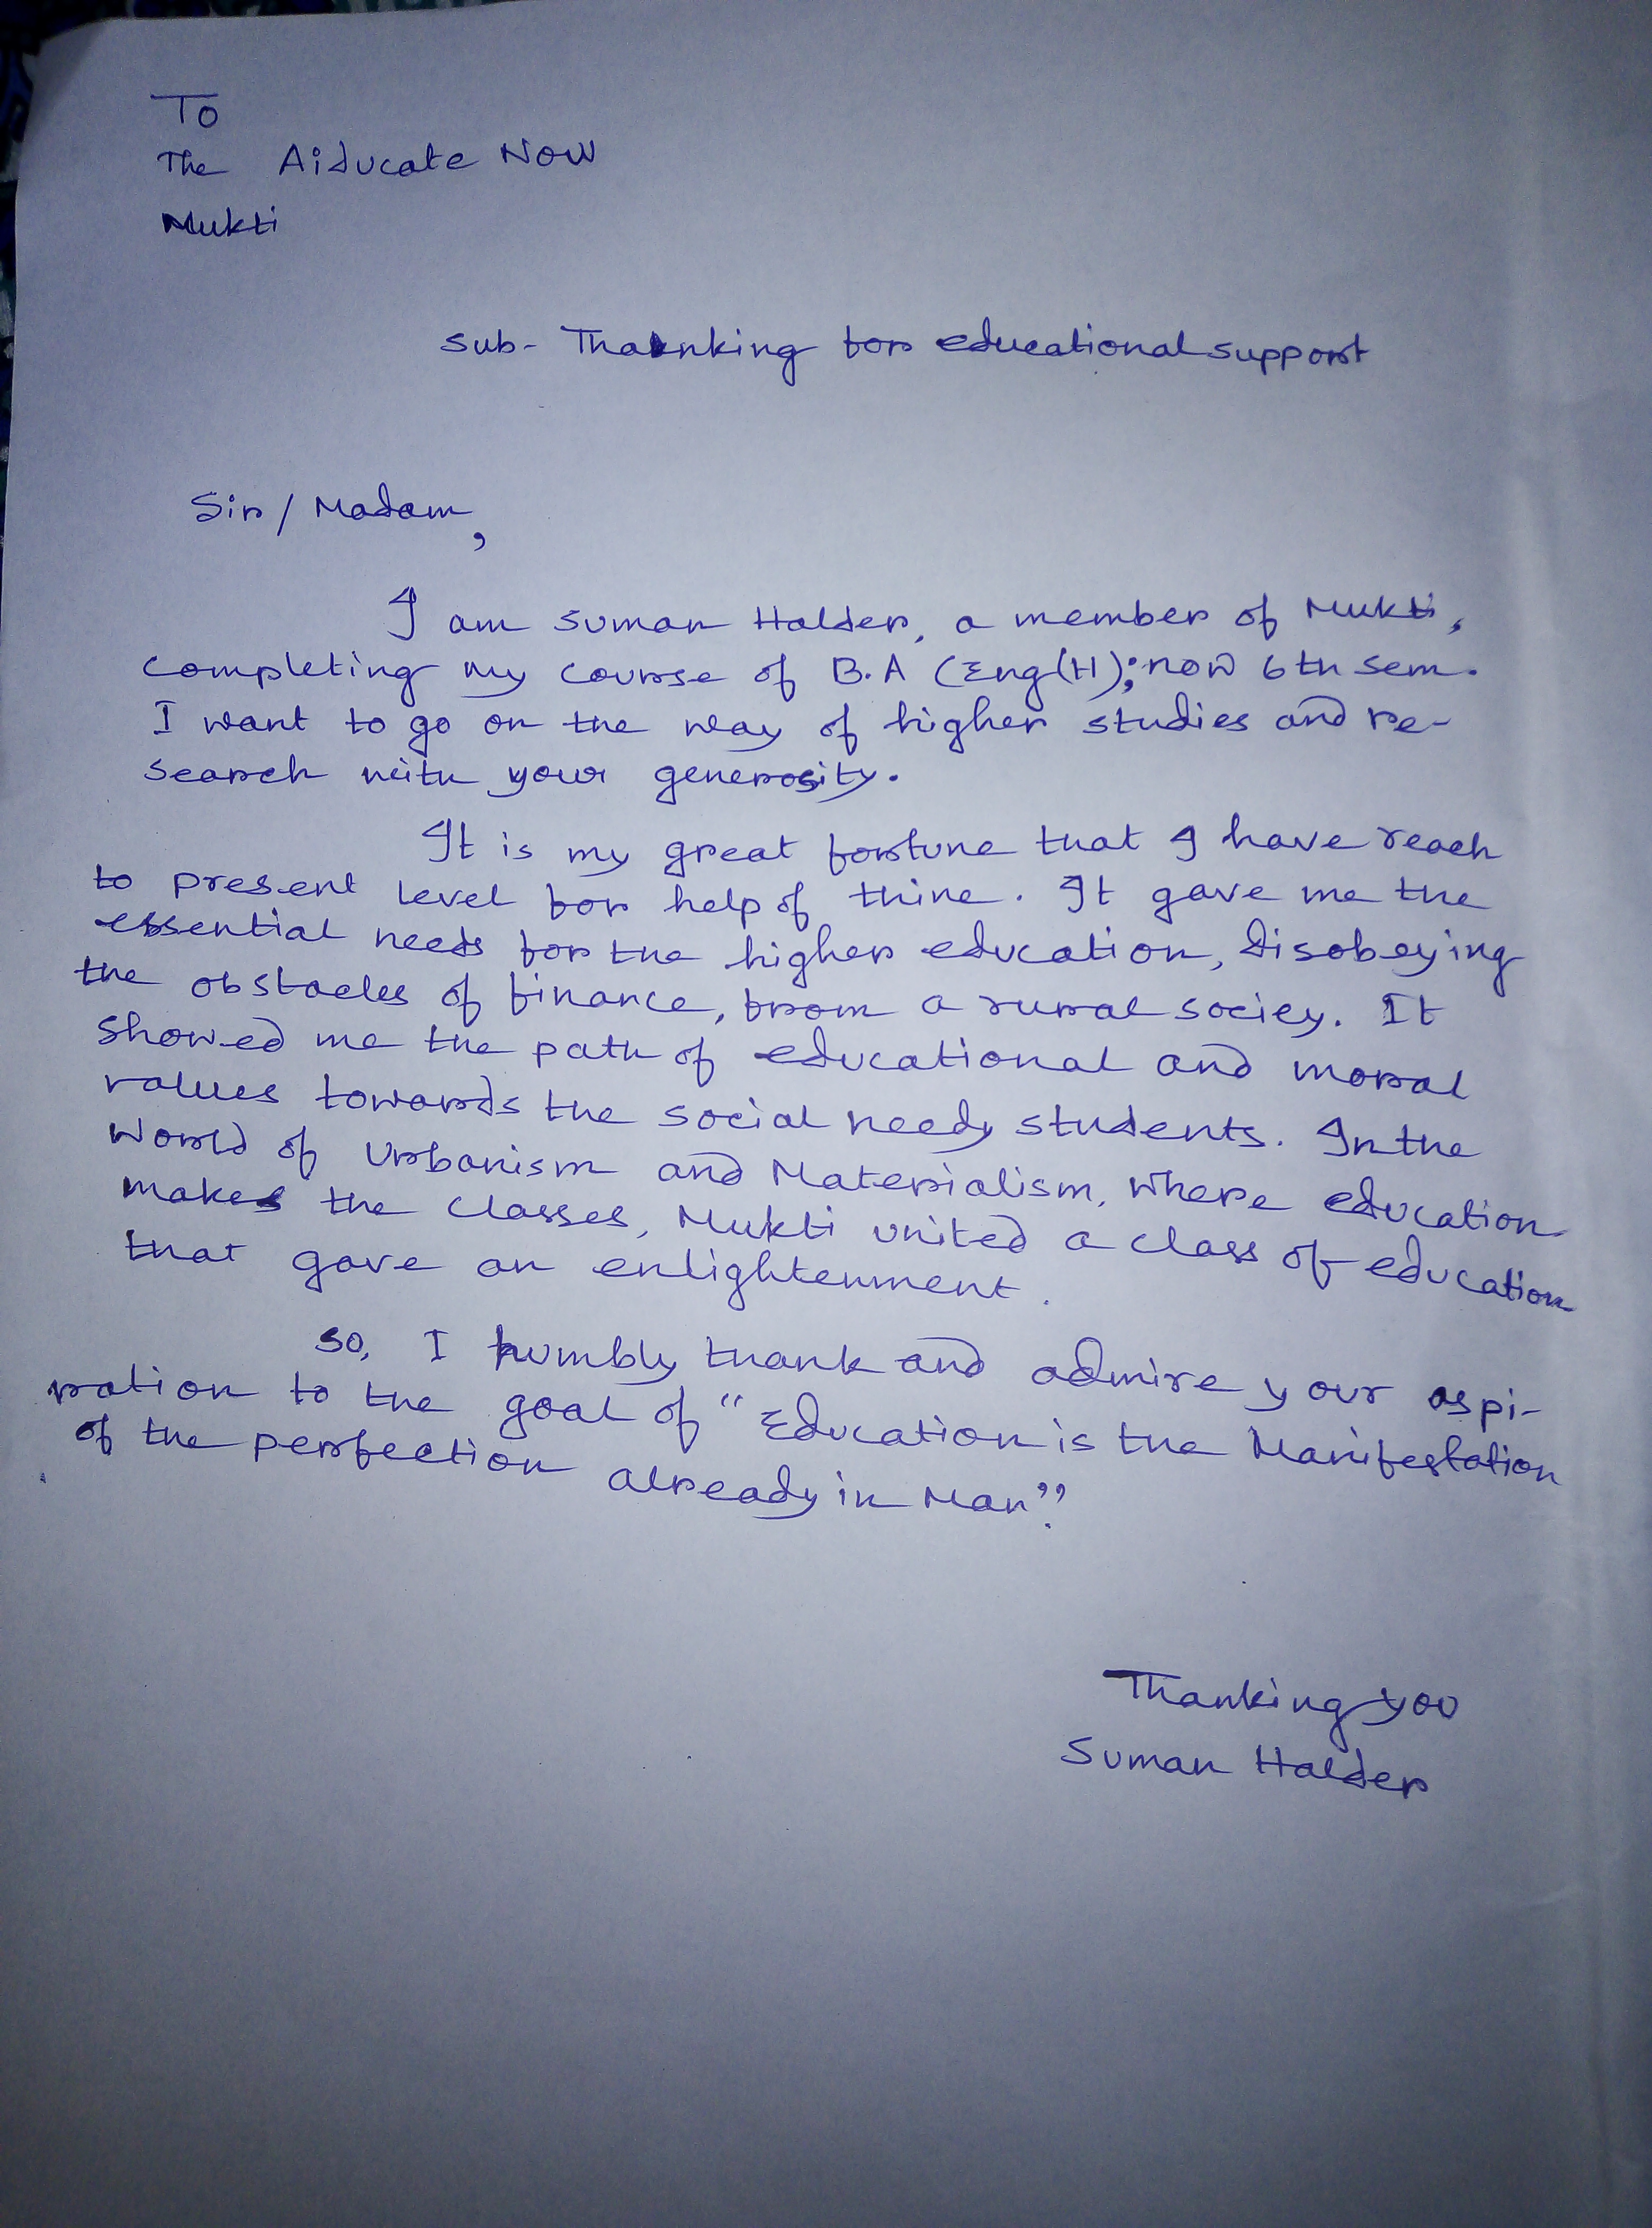 To
The Aiducate Now
Mukti
Sub- Thanking for educational support
Sir / Madam,
I am Suman Halder, a member of Mukti,
completing my course of B.A (Eng(H); now 6th sem.
I want to go on the way of higher studies and re-
search with your generosity.
It is my great fortune that I have reach
to present level for help of thine. It gave me the
essential needs for the higher education, disobeying
the obstacles of finance, from a rural sociey. It
showed me the path of educational and moral
values towards the social needy students. In the
World of Urbanism and Materialism, where education
makes the classes, Mukti united a class of education
that gave an enlightenment.
So, I humbly thank and admire your aspi-
ration to the goal of "Education is the Manifestation
of the perfection already in Man".
Thanking you
Suman Halder